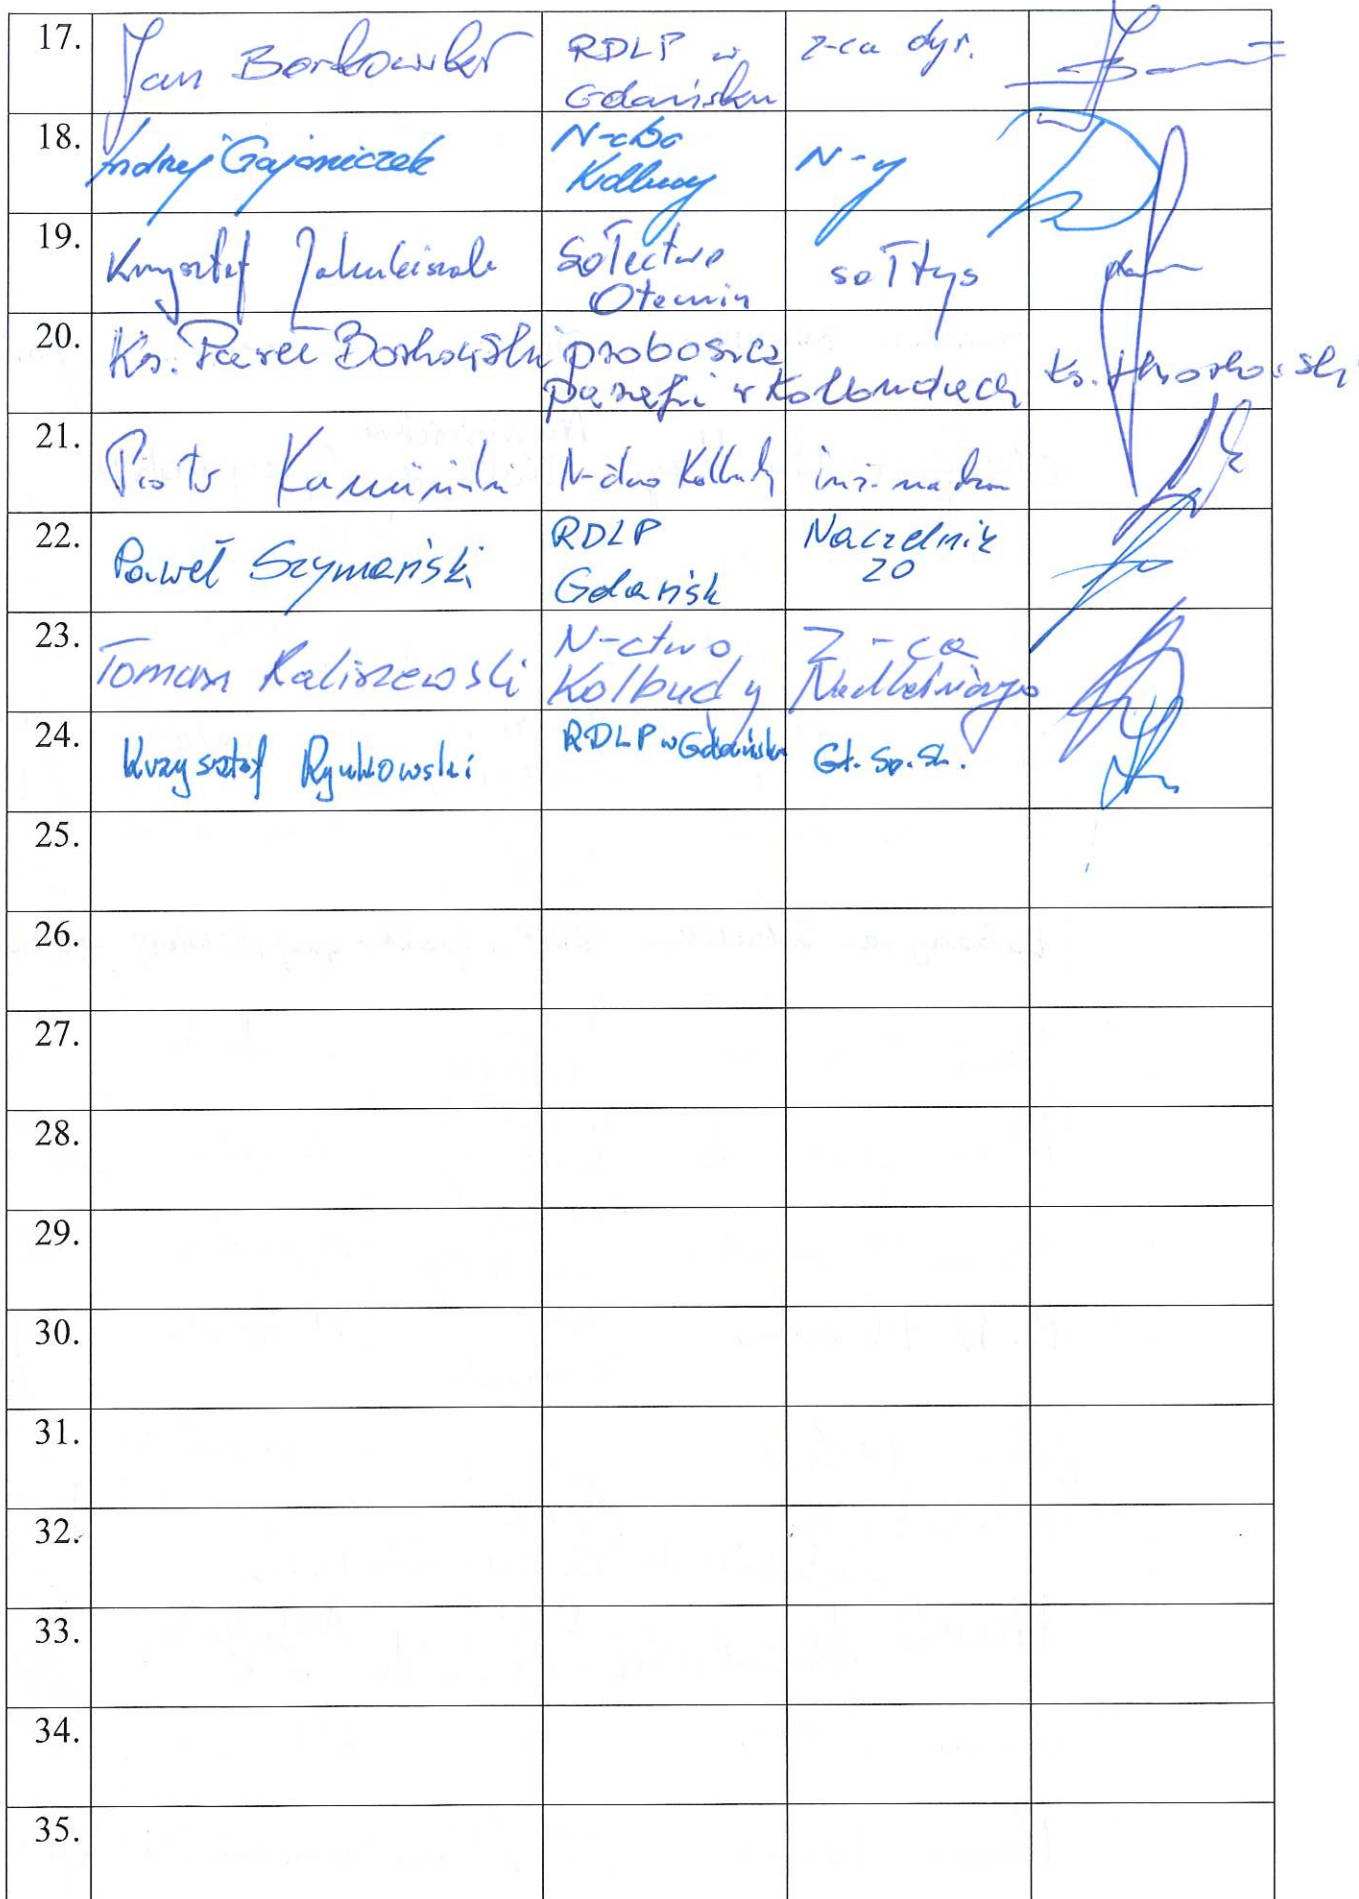 17. Jan Borkowski RDLP w z-ca dyr.
Gdańsku
18. Andrzej Gajowniczek N-ctwo N-y
Kolbudy
19. Krzysztof Jakubiszak Sołectwo sołtys
Otomin
20. Ks. Paweł Borkowski proboszcz
parafii w Kolbudach Ks. Borkowski
21. Piotr Kamiński N-ctwo Kolbudy inż. nadzoru
22. Paweł Szymański RDLP Naczelnik
Gdańsk ZO
23. Tomasz Kaliszewski N-ctwo Z-ca
Kolbudy Nadleśniczego
24. Krzysztof Rynkowski RDLP w Gdańsku Gł. Sp. SL.
25.
26.
27.
28.
29.
30.
31.
32.
33.
34.
35.